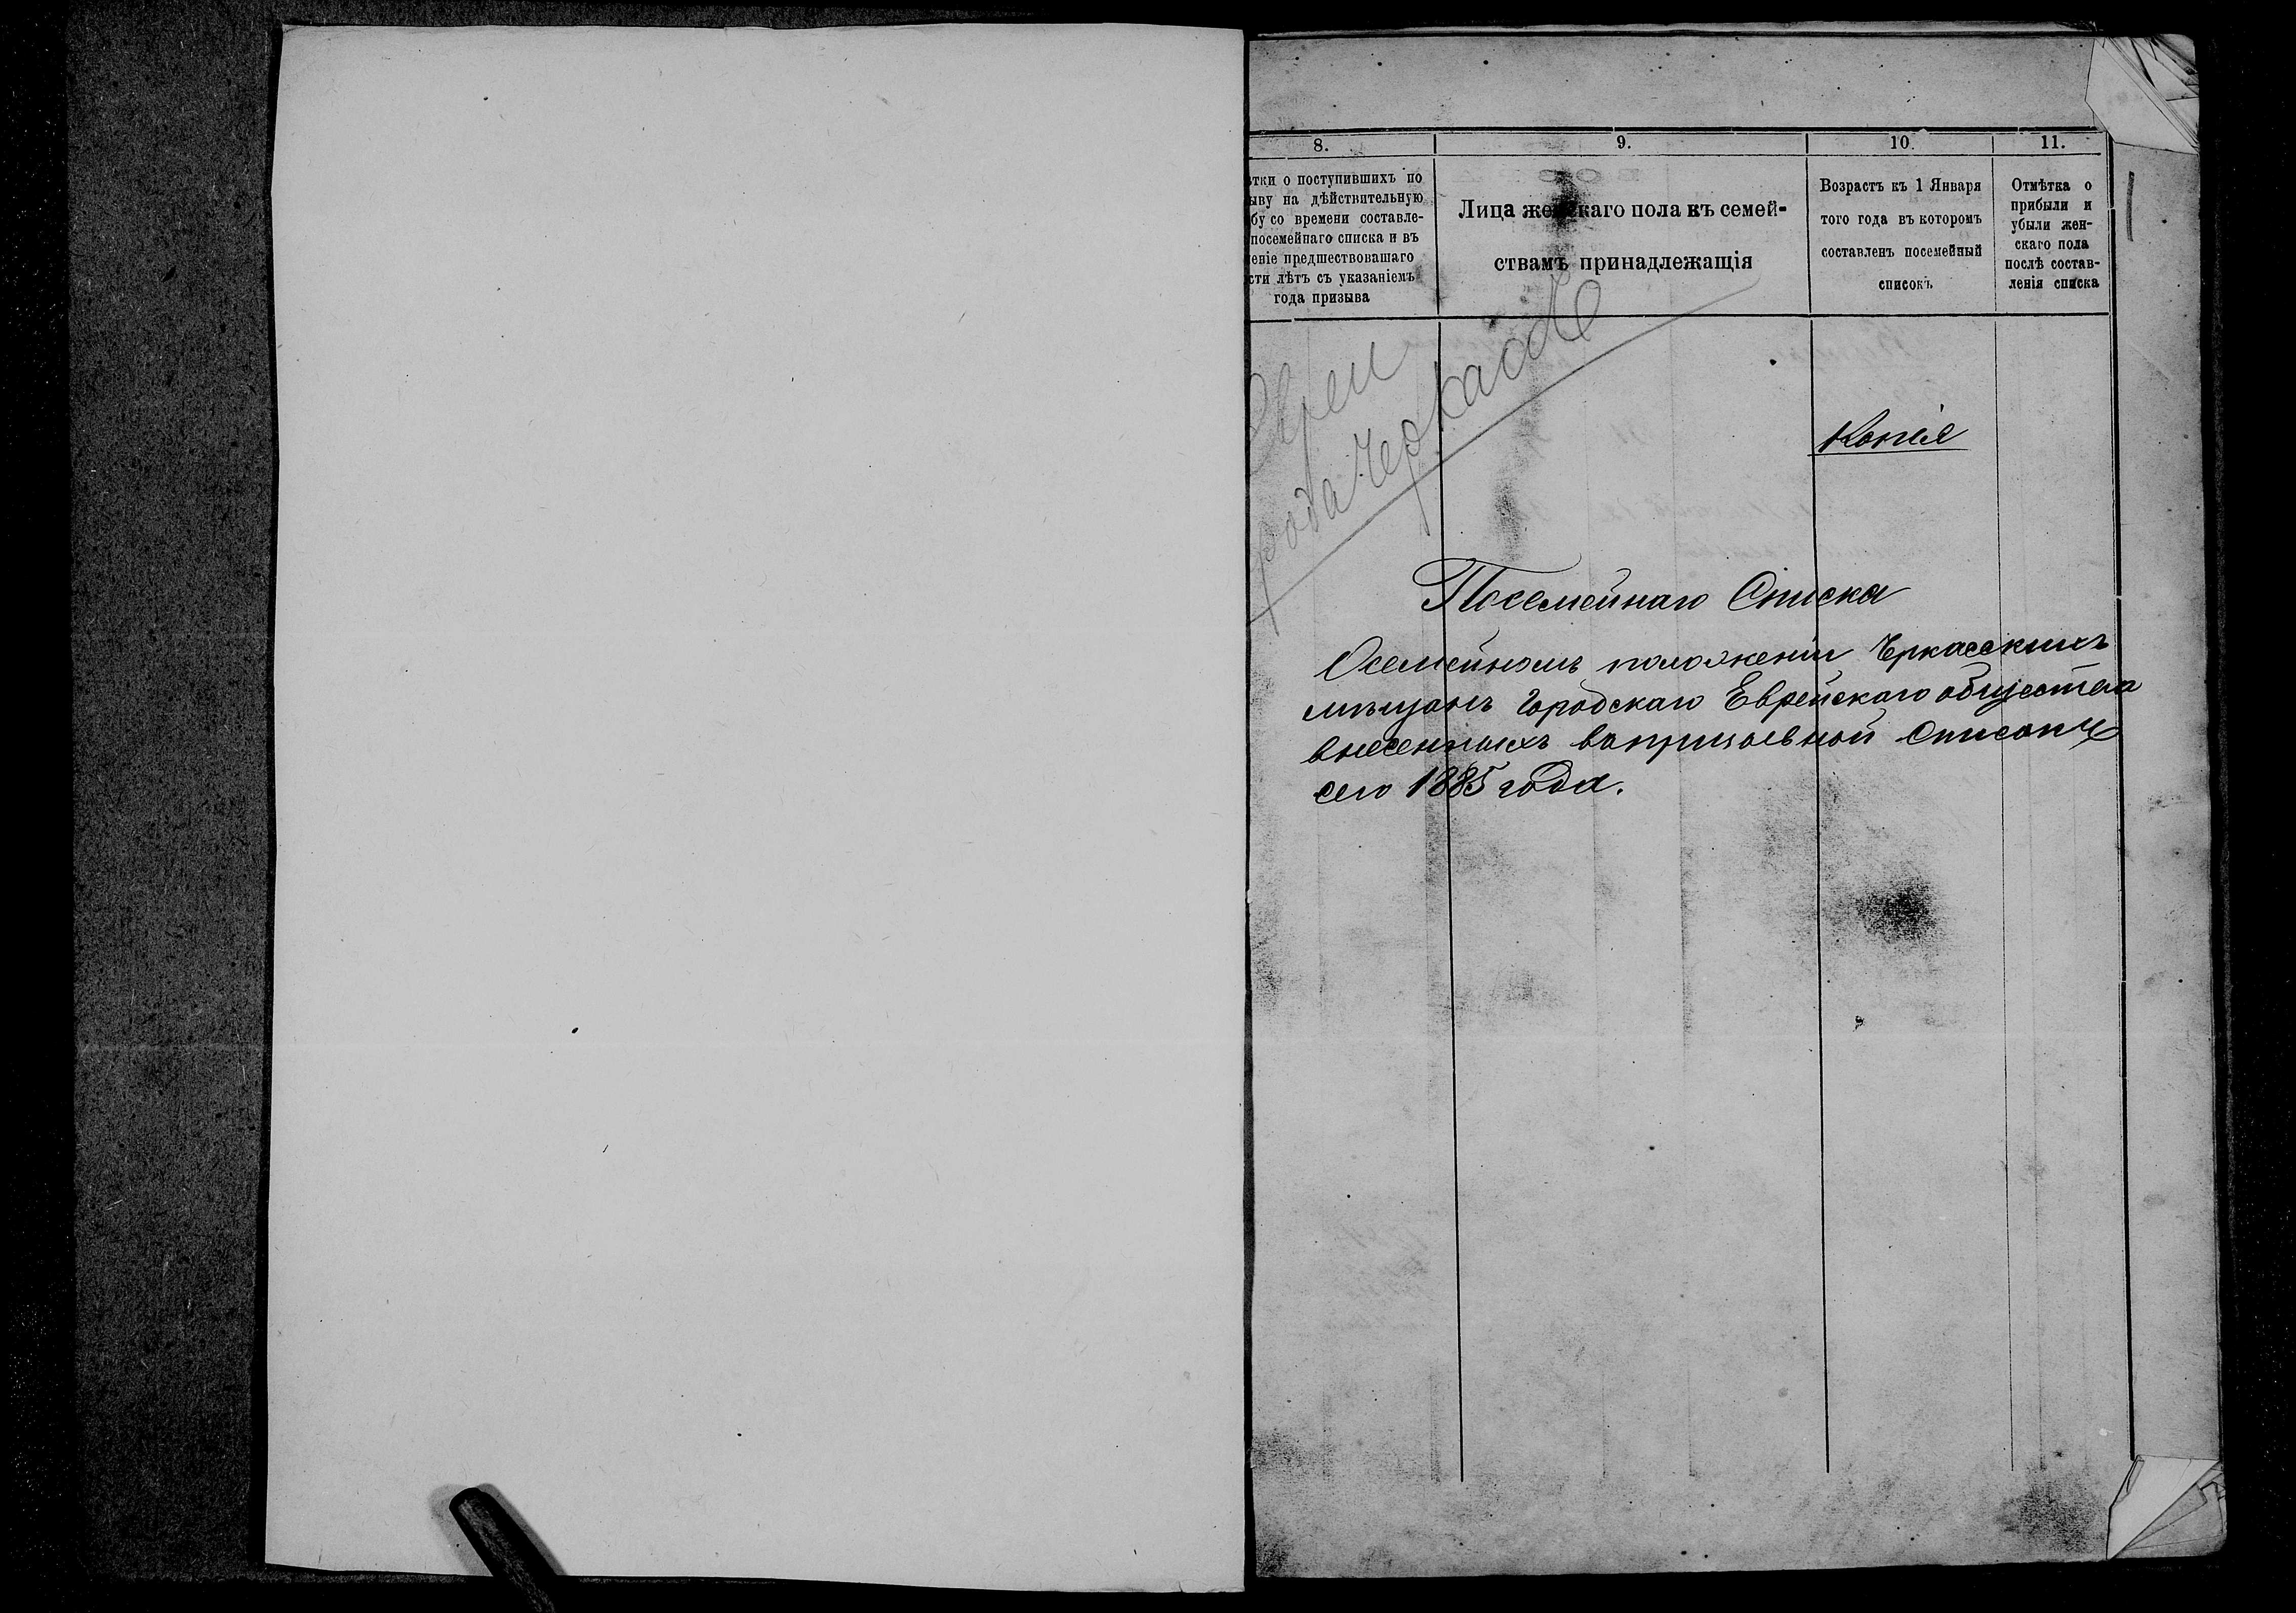 8.
9.
10.
11.
тки о поступившихъ по
ыву на дѣйствительную
бу со времени составле-
посемейнаго списка и въ
еніе предшествовашаго
сти лѣтъ съ указаніемъ
года призыва
Лица женскаго пола къ семей-
ствамъ принадлежащія
Возрастъ къ 1 Января
того года въ которомъ
составленъ посемейный
списокъ
Отмѣтка о
прибыли и
убыли жен-
скаго пола
послѣ состав-
ленія списка
Евреи
рода Черкассъ
Копія
Посемейнаго Списка
Осемейномъ положеніи Черкасскихъ
мѣщанъ Городскаго Еврейскаго общества
внесенныхъ вопризывной Списокъ
сего 1885 года.